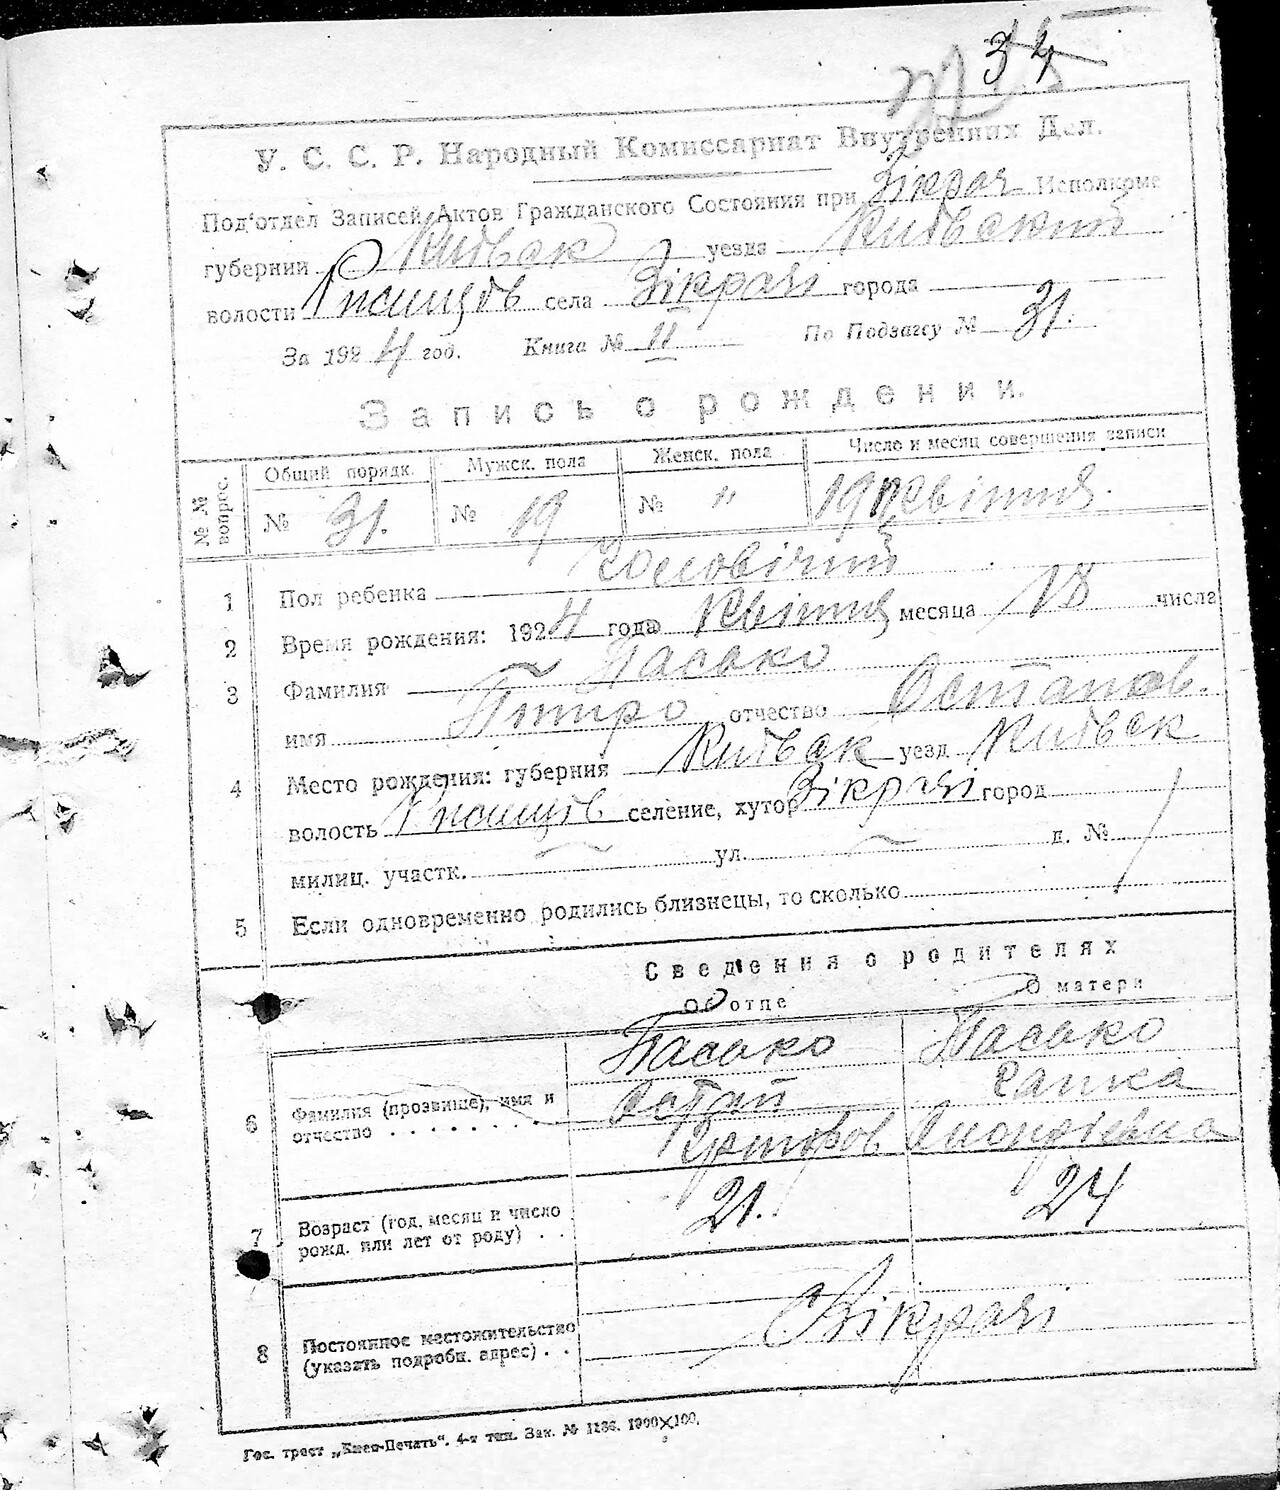 34
У. С. С. Р. Народный Комиссариат Внутренних Дел.
Под'отдел Записей Актов Гражданского Состояния при Зікрач Исполкоме
губернии Київськ уезда Київський
волости Ржищів села Зікрачі города
За 1924 год. Книга № II По Подзагсу № 31.
Запись о рождении.
№№ вопрос. Общий порядк. Мужск. пола Женск. пола Число и месяц совершения записи
№ 31. № 19 № " 19 Квітня.
1 Пол ребенка Чоловічий
2 Время рождения: 1924 года Квітня месяца 18 числа
3 Фамилия Пасько
имя отчество Остапов.
4 Место рождения: губерния Київськ уезд Київськ
волость Ржищів селение, хутор Зікрачі город
милиц. участк. ул. д. №
5 Если одновременно родились близнецы, то сколько
Сведения о родителях
Об отце О матери
Пасько Пасько
6 Фамилия (прозвище), имя и отчество Остап Ганка
7 Возраст (год, месяц и число рожд. или лет от роду) 21. 24
8 Постоянное местожительство (указать подробн. адрес) Зікрачі
Гос. трест „Киев-Печать“. 4-я тип. Зак. № 1136. 1900×100.